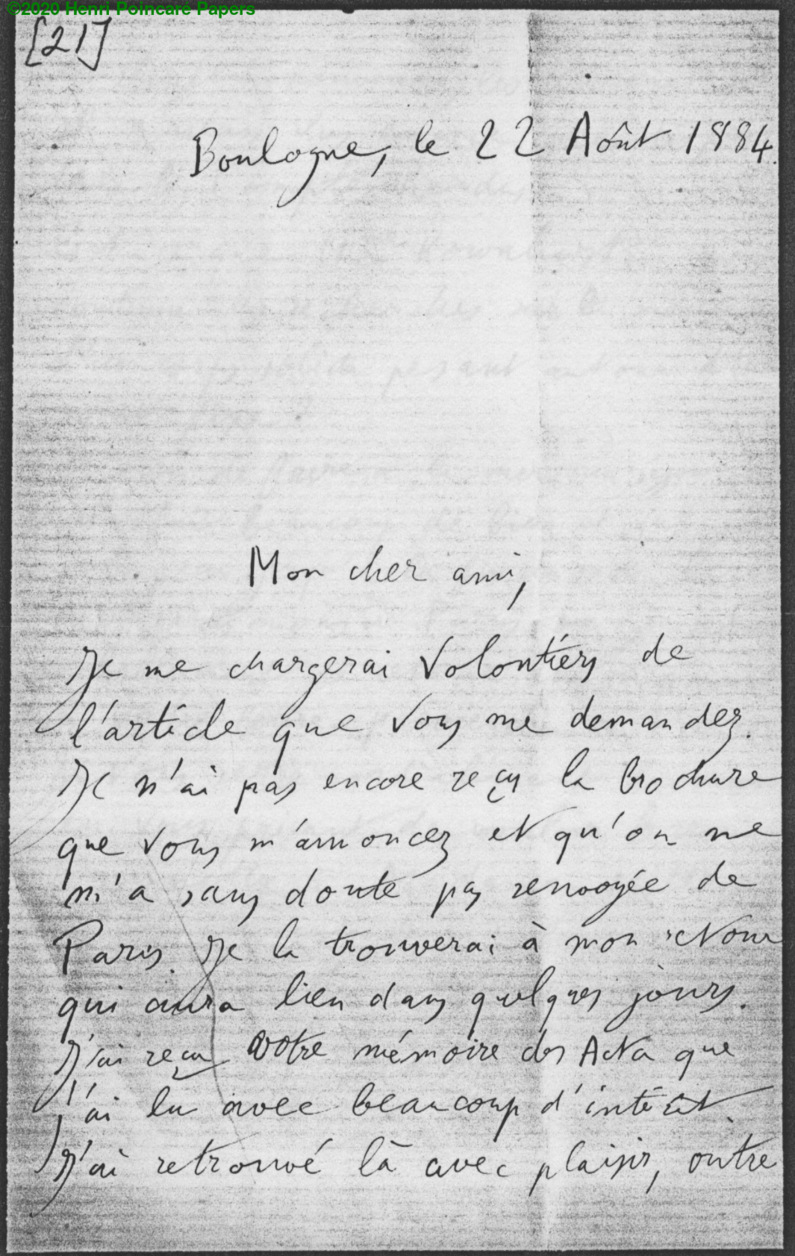 ©2020 Henri Poincaré Papers
[21]
Boulogne, le 22 Août 1884.
Mon cher ami,
Je me chargerai volontiers de
l'article que vous me demandez.
Je n'ai pas encore reçu la brochure
que vous m'annoncez et qu'on ne
m'a sans doute pas renvoyée de
Paris. Je la trouverai à mon retour
qui aura lieu dans quelques jours.
J'ai reçu votre mémoire des Acta que
j'ai lu avec beaucoup d'intérêt.
J'ai retrouvé là avec plaisir, outre